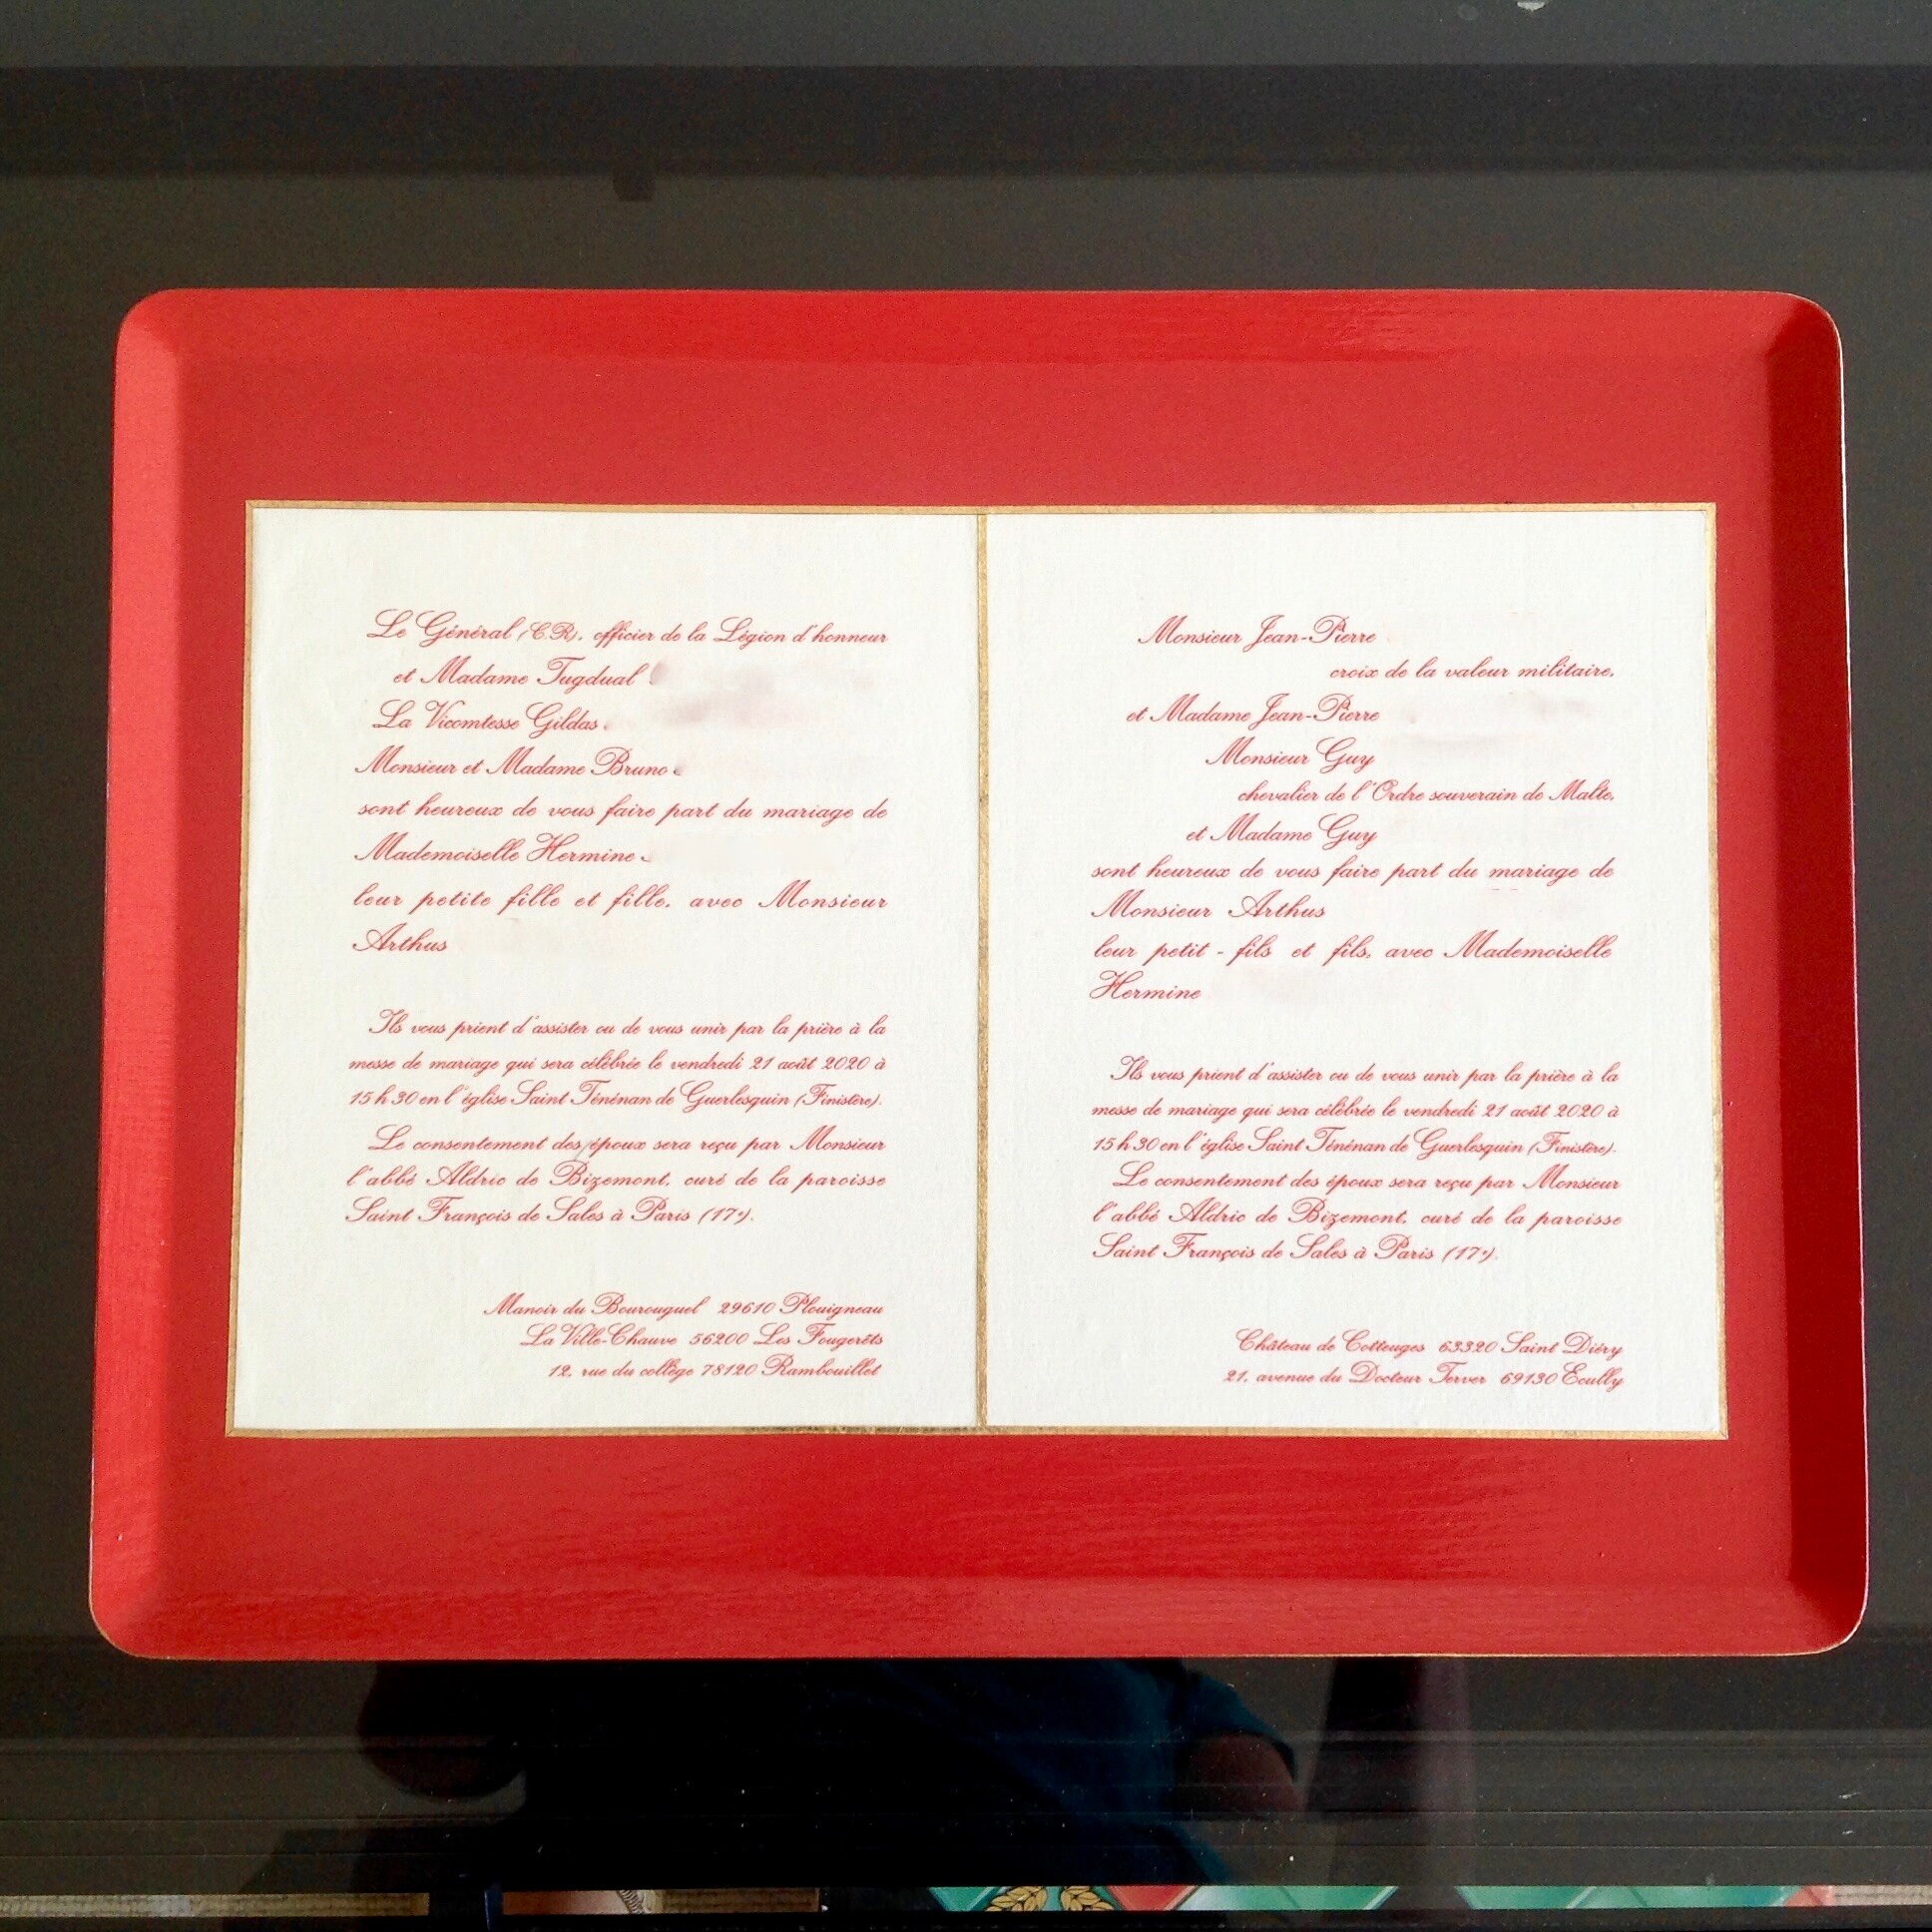 Le Général (C.R). officier de la Légion d'honneur
et Madame Tugdual
La Vicomtesse Gildas
Monsieur et Madame Bruno
sont heureux de vous faire part du mariage de
Mademoiselle Hermine
leur petite fille et fille, avec Monsieur
Arthus
Ils vous prient d'assister ou de vous unir par la prière à la
messe de mariage qui sera célébrée le vendredi 21 août 2020 à
15 h 30 en l'église Saint Ténénan de Guerlesquin (Finistère).
Le consentement des époux sera reçu par Monsieur
l'abbé Aldric de Bizemont, curé de la paroisse
Saint François de Sales à Paris (17e).
Manoir du Bourouguel 29610 Plouigneau
La Ville-Chauve 56200 Les Fougerêts
12, rue du collège 78120 Rambouillet
Monsieur Jean-Pierre
croix de la valeur militaire,
et Madame Jean-Pierre
Monsieur Guy
chevalier de l'Ordre souverain de Malte,
et Madame Guy
sont heureux de vous faire part du mariage de
Monsieur Arthus
leur petit - fils et fils, avec Mademoiselle
Hermine
Ils vous prient d'assister ou de vous unir par la prière à la
messe de mariage qui sera célébrée le vendredi 21 août 2020 à
15 h 30 en l'église Saint Ténénan de Guerlesquin (Finistère).
Le consentement des époux sera reçu par Monsieur
l'abbé Aldric de Bizemont, curé de la paroisse
Saint François de Sales à Paris (17e).
Château de Cotteuges 63320 Saint Diéry
21, avenue du Docteur Terver 69130 Ecully